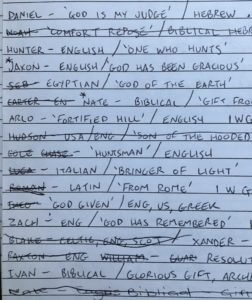 DANIEL - 'GOD IS MY JUDGE' / HEBREW
NOAH - 'COMFORT REPOSE' / BIBLICAL HEB
HUNTER - ENGLISH / 'ONE WHO HUNTS'
*JAXON - ENGLISH / 'GOD HAS BEEN GRACIOUS'
SEB - EGYPTIAN / 'GOD OF THE EARTH'
CARTER - EN * NATE - BIBLICAL / 'GIFT FRO
ARLO - 'FORTIFIED HILL' / ENGLISH I W G
HUDSON - USA / ENG / 'SON OF THE HOODED
COLE CHASE - 'HUNTSMAN' / ENGLISH
LUCA - ITALIAN / 'BRINGER OF LIGHT'
ROMAN - LATIN / 'FROM ROME' I W G
THEO - 'GOD GIVEN' / ENG, US, GREEK
ZACH - ENG / 'GOD HAS REMEMBERED' I
BLAKE - CELTIC, ENG, SCOT / XANDER -
PAXTON - ENG WILLIAM - RESOLUT
IVAN - BIBLICAL / GLORIOUS GIFT, ARCH
Biblical Gif